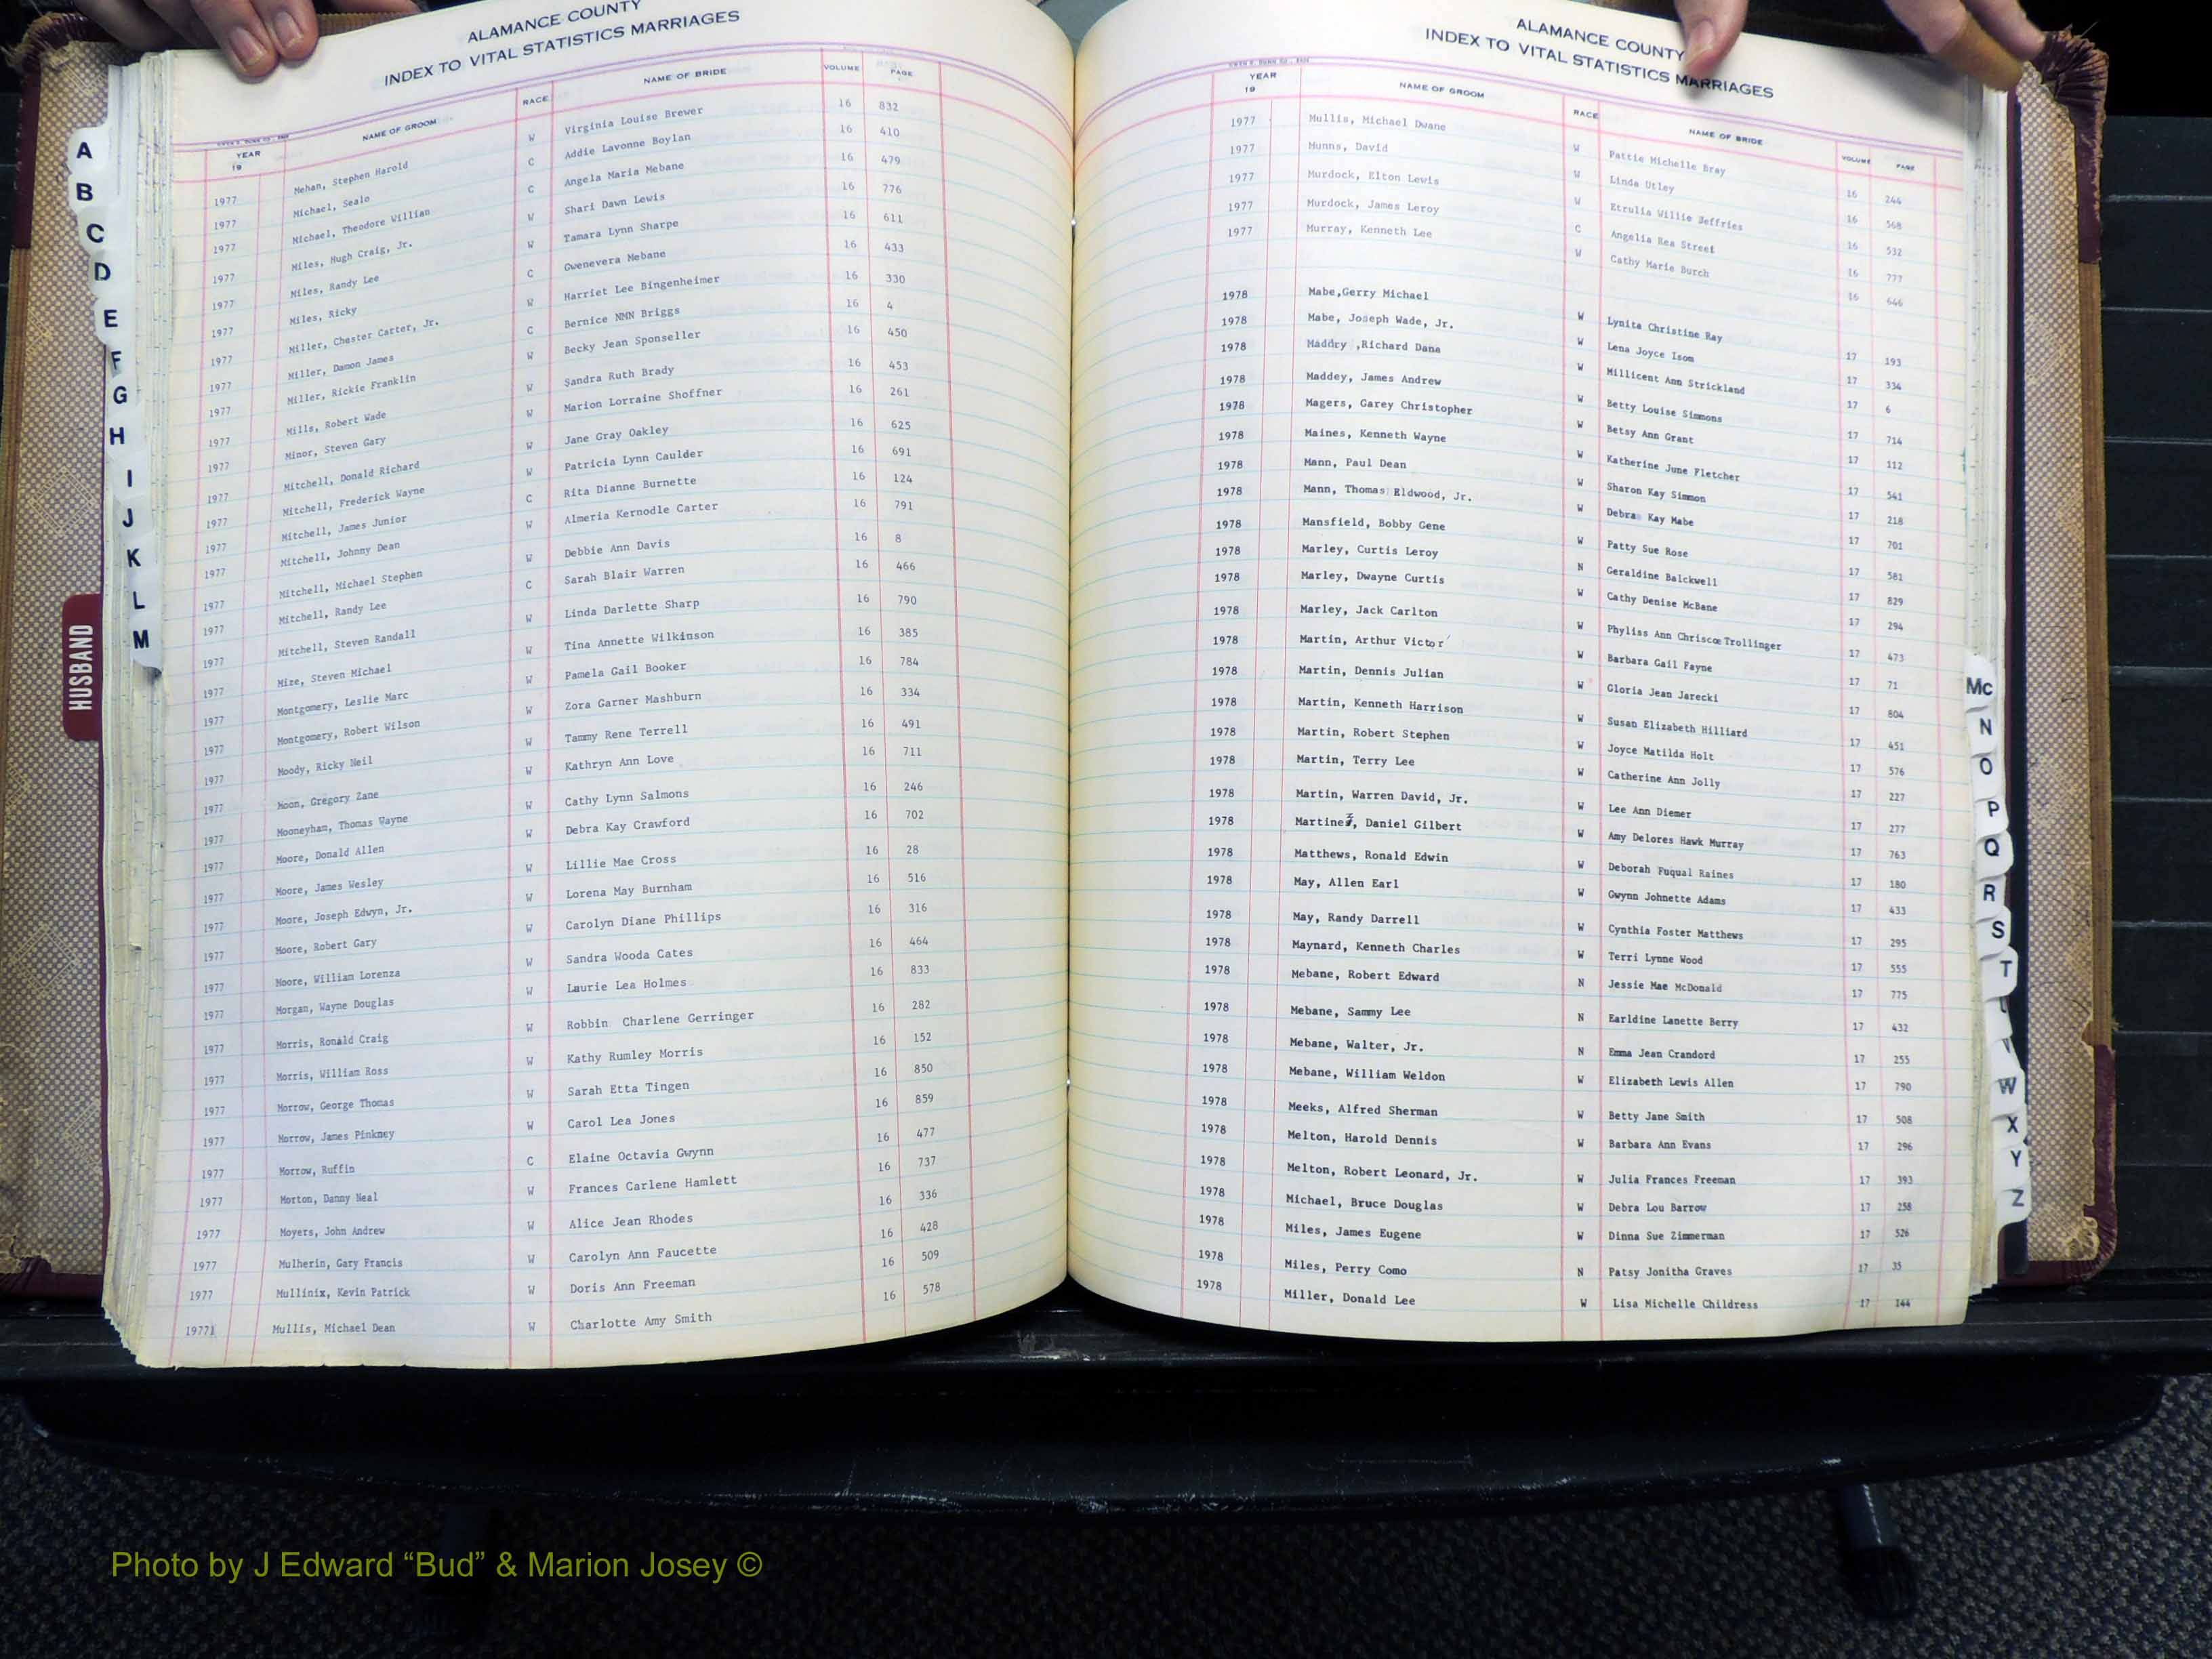 ALAMANCE COUNTY
INDEX TO VITAL STATISTICS MARRIAGES
YEAR 19 NAME OF GROOM RACE NAME OF BRIDE VOLUME PAGE
1977 Mehan, Stephen Harold W Virginia Louise Brewer 16 832
1977 Michael, Sealo C Addie Lavonne Boylan 16 410
1977 Michael, Theodore Willian C Angela Maria Mebane 16 479
1977 Miles, Hugh Craig, Jr. W Shari Dawn Lewis 16 776
1977 Miles, Randy Lee W Tamara Lynn Sharpe 16 611
1977 Miles, Ricky C Gwenevera Mebane 16 433
1977 Miller, Chester Carter, Jr. W Harriet Lee Bingenheimer 16 330
1977 Miller, Damon James C Bernice NMN Briggs 16 4
1977 Miller, Rickie Franklin W Becky Jean Sponseller 16 450
1977 Mills, Robert Wade W Sandra Ruth Brady 16 453
1977 Minor, Steven Gary W Marion Lorraine Shoffner 16 261
1977 Mitchell, Donald Richard W Jane Gray Oakley 16 625
1977 Mitchell, Frederick Wayne W Patricia Lynn Caulder 16 691
1977 Mitchell, James Junior C Rita Dianne Burnette 16 124
1977 Mitchell, Johnny Dean W Almeria Kernodle Carter 16 791
1977 Mitchell, Michael Stephen W Debbie Ann Davis 16 8
1977 Mitchell, Randy Lee C Sarah Blair Warren 16 466
1977 Mitchell, Steven Randall W Linda Darlette Sharp 16 790
1977 Mize, Steven Michael W Tina Annette Wilkinson 16 385
1977 Montgomery, Leslie Marc W Pamela Gail Booker 16 784
1977 Montgomery, Robert Wilson W Zora Garner Mashburn 16 334
1977 Moody, Ricky Neil W Tammy Rene Terrell 16 491
1977 Moon, Gregory Zane W Kathryn Ann Love 16 711
1977 Mooneyham, Thomas Wayne W Cathy Lynn Salmons 16 246
1977 Moore, Donald Allen W Debra Kay Crawford 16 702
1977 Moore, James Wesley W Lillie Mae Cross 16 28
1977 Moore, Joseph Edwyn, Jr. W Lorena May Burnham 16 516
1977 Moore, Robert Gary W Carolyn Diane Phillips 16 316
1977 Moore, William Lorenza W Sandra Wooda Cates 16 464
1977 Morgan, Wayne Douglas W Laurie Lea Holmes 16 833
1977 Morris, Ronald Craig W Robbin Charlene Gerringer 16 282
1977 Morris, William Ross W Kathy Rumley Morris 16 152
1977 Morrow, George Thomas W Sarah Etta Tingen 16 850
1977 Morrow, James Pinkney W Carol Lea Jones 16 859
1977 Morrow, Ruffin C Elaine Octavia Gwynn 16 477
1977 Morton, Danny Neal W Frances Carlene Hamlett 16 737
1977 Moyers, John Andrew W Alice Jean Rhodes 16 336
1977 Mulherin, Gary Francis W Carolyn Ann Faucette 16 428
1977 Mullinix, Kevin Patrick W Doris Ann Freeman 16 509
1977 Mullis, Michael Dean W Charlotte Amy Smith 16 578
A
B
C
D
E
F
G
H
I
J
K
L
M
HUSBAND
ALAMANCE COUNTY
INDEX TO VITAL STATISTICS MARRIAGES
YEAR 19 NAME OF GROOM RACE NAME OF BRIDE VOLUME PAGE
1977 Mullis, Michael Dwane W Pattie Michelle Bray 16 244
1977 Munns, David W Linda Utley 16 568
1977 Murdock, Elton Lewis W Etrulia Willie Jeffries 16 532
1977 Murdock, James Leroy C Angelia Rea Street 16 777
1977 Murray, Kenneth Lee W Cathy Marie Burch 16 646
1978 Mabe,Gerry Michael W Lynita Christine Ray 17 193
1978 Mabe, Joseph Wade, Jr. W Lena Joyce Isom 17 334
1978 Maddry ,Richard Dana W Millicent Ann Strickland 17 6
1978 Maddey, James Andrew W Betty Louise Simmons 17 714
1978 Magers, Garey Christopher W Betsy Ann Grant 17 112
1978 Maines, Kenneth Wayne W Katherine June Fletcher 17 541
1978 Mann, Paul Dean W Sharon Kay Simmon 17 218
1978 Mann, Thomas Eldwood, Jr. W Debra Kay Mabe 17 701
1978 Mansfield, Bobby Gene W Patty Sue Rose 17 581
1978 Marley, Curtis Leroy N Geraldine Balckwell 17 829
1978 Marley, Dwayne Curtis W Cathy Denise McBane 17 294
1978 Marley, Jack Carlton W Phyliss Ann Chriscoe Trollinger 17 473
1978 Martin, Arthur Victor W Barbara Gail Fayne 17 71
1978 Martin, Dennis Julian W Gloria Jean Jarecki 17 804
1978 Martin, Kenneth Harrison W Susan Elizabeth Hilliard 17 451
1978 Martin, Robert Stephen W Joyce Matilda Holt 17 576
1978 Martin, Terry Lee W Catherine Ann Jolly 17 227
1978 Martin, Warren David, Jr. W Lee Ann Diemer 17 277
1978 Martinez, Daniel Gilbert W Amy Delores Hawk Murray 17 763
1978 Matthews, Ronald Edwin W Deborah Fuqual Raines 17 180
1978 May, Allen Earl W Gwynn Johnette Adams 17 433
1978 May, Randy Darrell W Cynthia Foster Matthews 17 295
1978 Maynard, Kenneth Charles W Terri Lynne Wood 17 555
1978 Mebane, Robert Edward N Jessie Mae McDonald 17 775
1978 Mebane, Sammy Lee N Earldine Lanette Berry 17 432
1978 Mebane, Walter, Jr. N Emma Jean Crandord 17 255
1978 Mebane, William Weldon W Elizabeth Lewis Allen 17 790
1978 Meeks, Alfred Sherman W Betty Jane Smith 17 508
1978 Melton, Harold Dennis W Barbara Ann Evans 17 296
1978 Melton, Robert Leonard, Jr. W Julia Frances Freeman 17 393
1978 Michael, Bruce Douglas W Debra Lou Barrow 17 258
1978 Miles, James Eugene W Dinna Sue Zimmerman 17 526
1978 Miles, Perry Como N Patsy Jonitha Graves 17 35
1978 Miller, Donald Lee W Lisa Michelle Childress 17 144
Mc
N
O
P
Q
R
S
T
W
X
Y
Z
Photo by J Edward “Bud” & Marion Josey ©